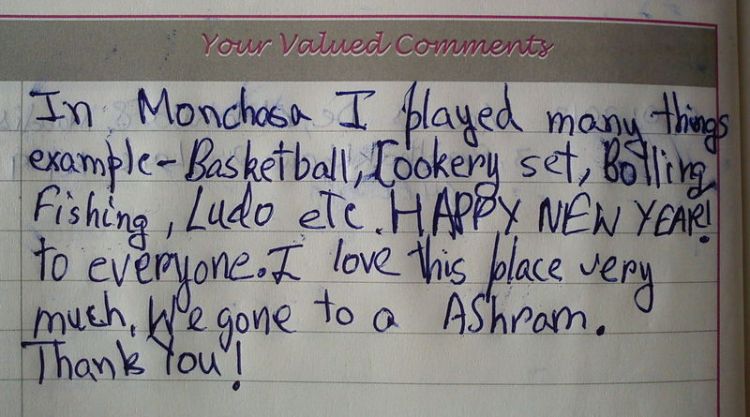 Your Valued Comments
In Monchasa I played many things
example-Basketball, Cookery set, Bolling
Fishing, Ludo etc. HAPPY NEW YEAR!
to everyone. I love this place very
much. We gone to a Ashram.
Thank You!